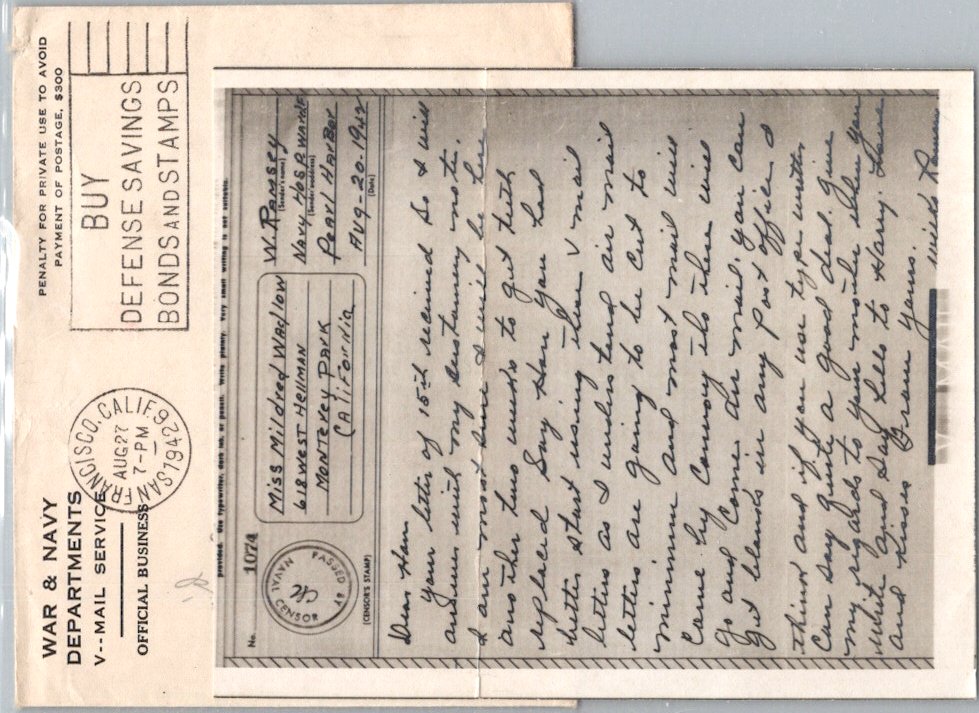 PENALTY FOR PRIVATE USE TO AVOID
PAYMENT OF POSTAGE, $300
BUY
DEFENSE SAVINGS
BONDS AND STAMPS
SAN FRANCISCO, CALIF.
AUG 27
7-PM
1942
WAR & NAVY
DEPARTMENTS
V--MAIL SERVICE
OFFICIAL BUSINESS
provided. Use typewriter, dark ink, or pencil. Write plainly. Very small writing is not suitable.
No. 1074
PASSED BY
NAVAL CENSOR
(CENSOR'S STAMP)
Miss Mildred Wadlow
618 West Hellman
Monterey Park
California
W. Ramsey
(Sender's name)
Navy Hos
(Sender's address)
Pearl Harbor
Aug-20-1942
(Date)
Dear Hon
your letter of 15th received so I will
answer with my
I am most and will be here
another two weeks to get teeth
replaced Say Hon you had
better start using these V mail
letters as I understand air mail
letters are going to be cut to
minimum and most mail will
come by Convoy its these will
go and come Air mail. you can
get blanks in any Post office
and if you use type writer
can say quite a good deal. Give
my regards to your mother when you
write and say hello to Harry. Love
and kisses from yours.
V-MAIL